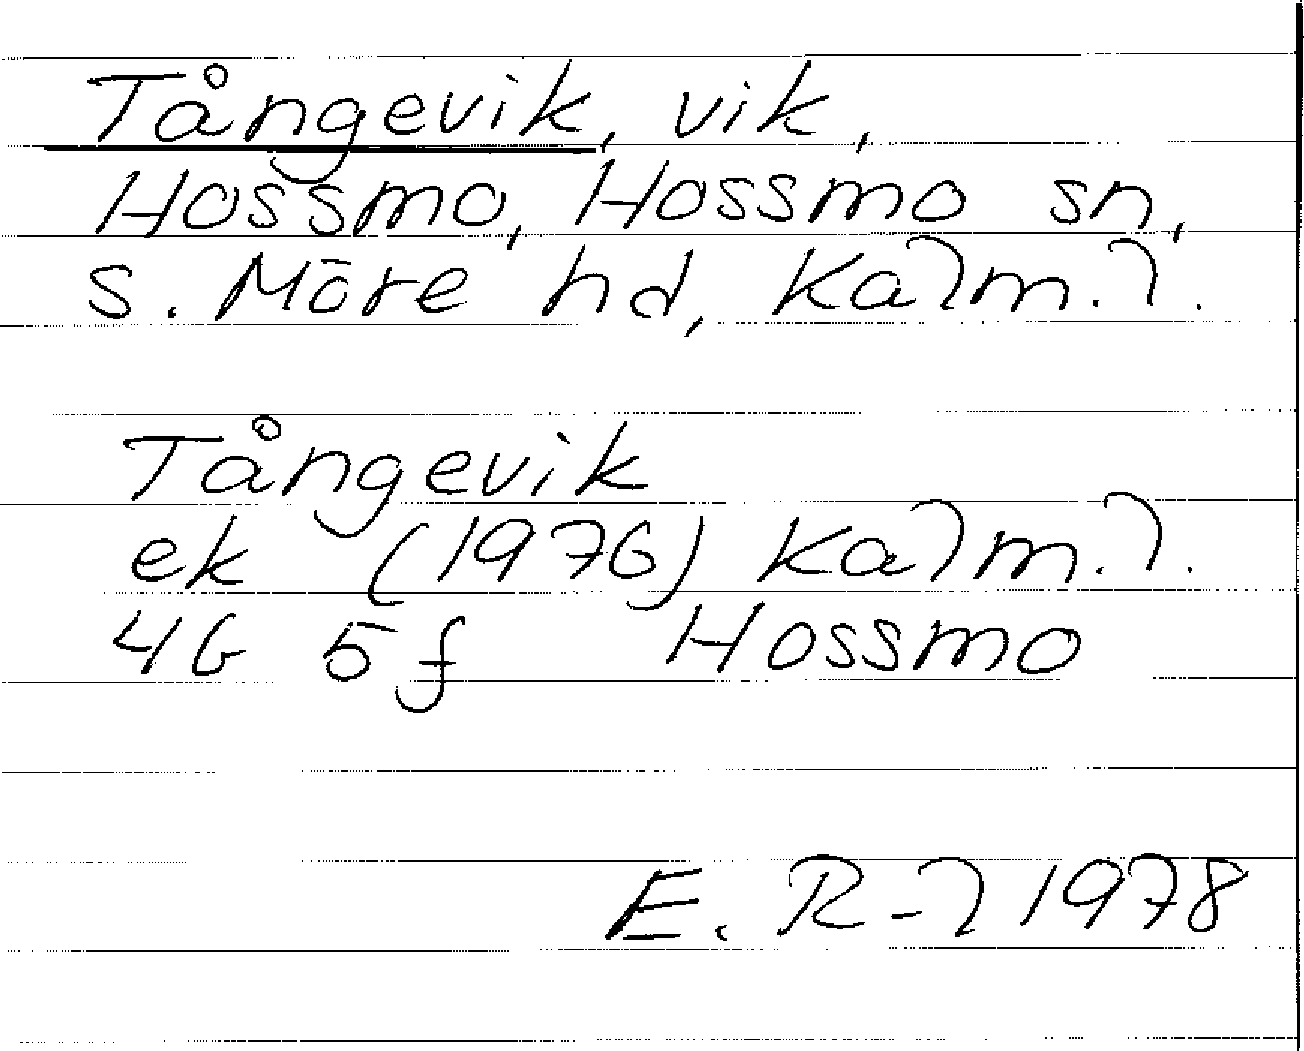 Tångevik, vik,
Hossmo, Hossmo sn,
s. Möre hd, Kalm. l.
Tångevik
ek (1976) Kalm. l.
4G 5f Hossmo
E. R-l 1978